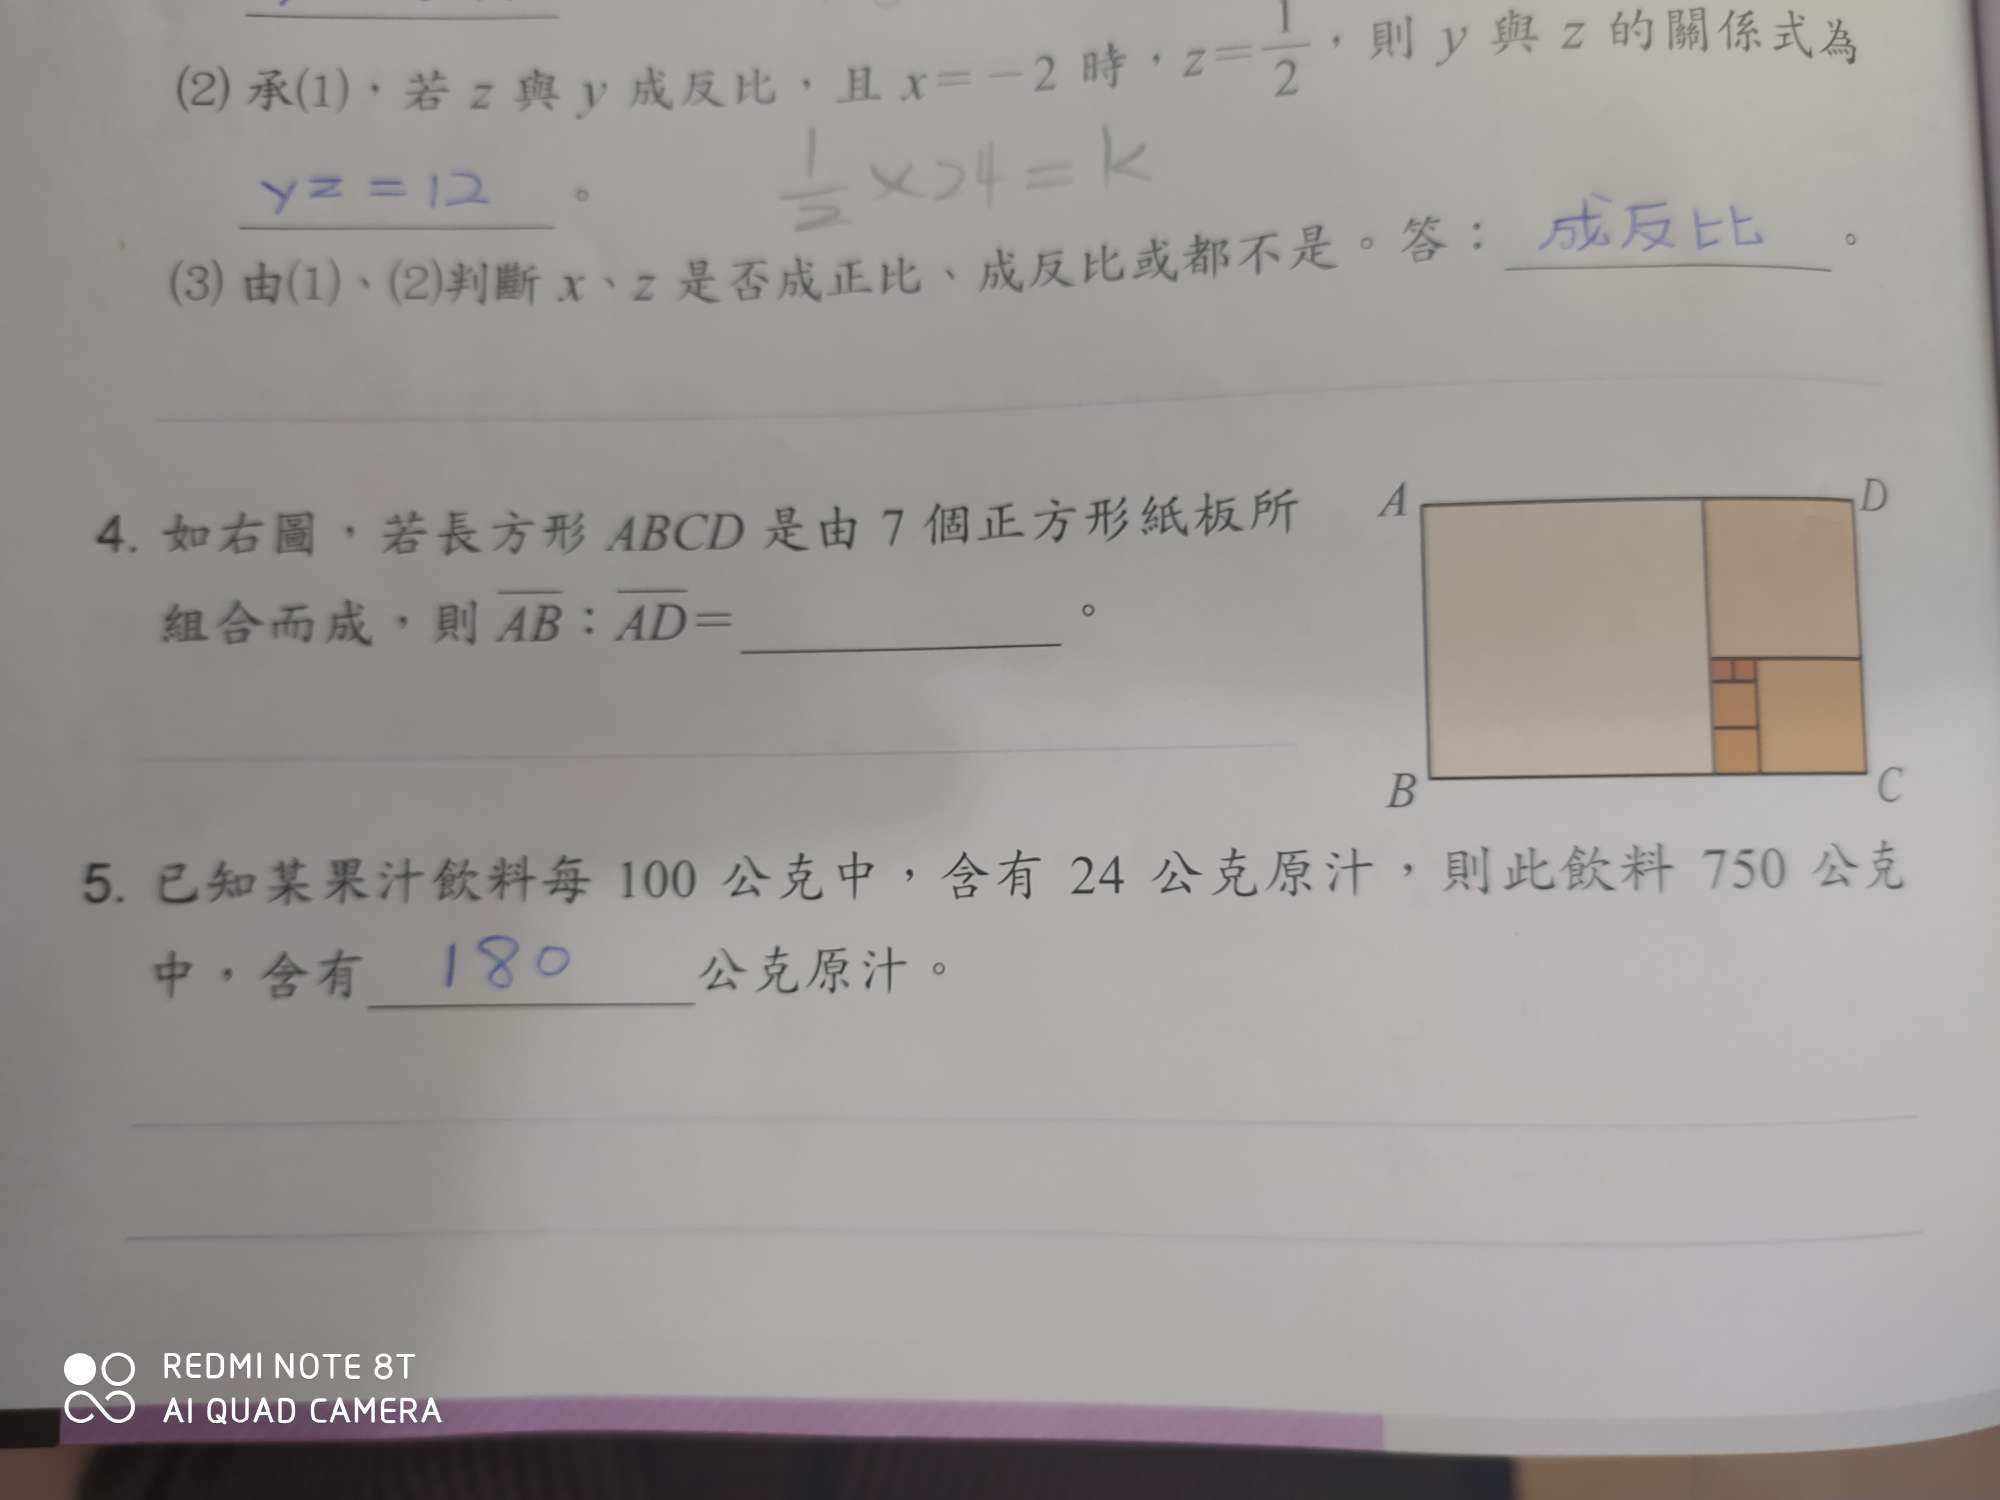 (2) 承(1)，若 z 與 y 成反比，且 x=－2 時，z=1/2，則 y 與 z 的關係式為
yz = 12 。
1/2 × 24 = k
(3) 由(1)、(2)判斷 x、z 是否成正比、成反比或都不是。答：成反比。
4. 如右圖，若長方形 ABCD 是由 7 個正方形紙板所
組合而成，則 AB：AD=＿＿＿＿。
A
D
B
C
5. 已知某果汁飲料每 100 公克中，含有 24 公克原汁，則此飲料 750 公克
中，含有 180 公克原汁。
REDMI NOTE 8T
AI QUAD CAMERA